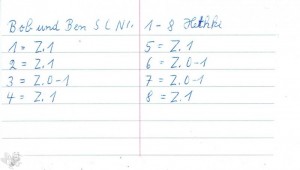 Bob und Ben S L Nr. 1-8 Hethke
1 = Z.1
2 = Z.1
3 = Z.0-1
4 = Z.1
5 = Z.1
6 = Z.0-1
7 = Z.0-1
8 = Z.1